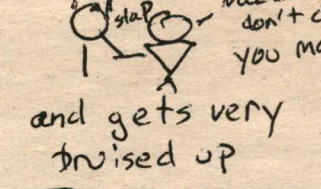 slap
don't c
you mo
and gets very
bruised up